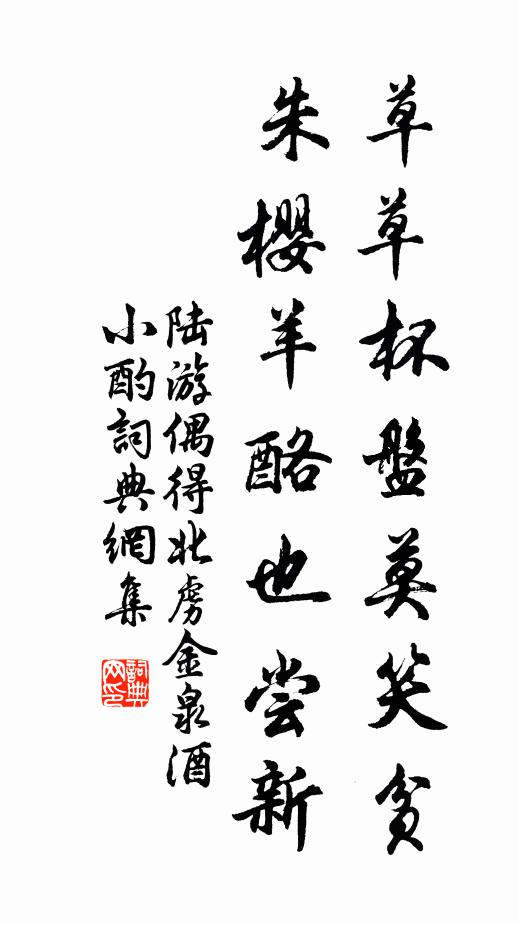 草草杯盤莫笑貧
朱櫻羊酪也嘗新
陆游偶得北虏金泉酒
小酌詞典網集
詞典网印